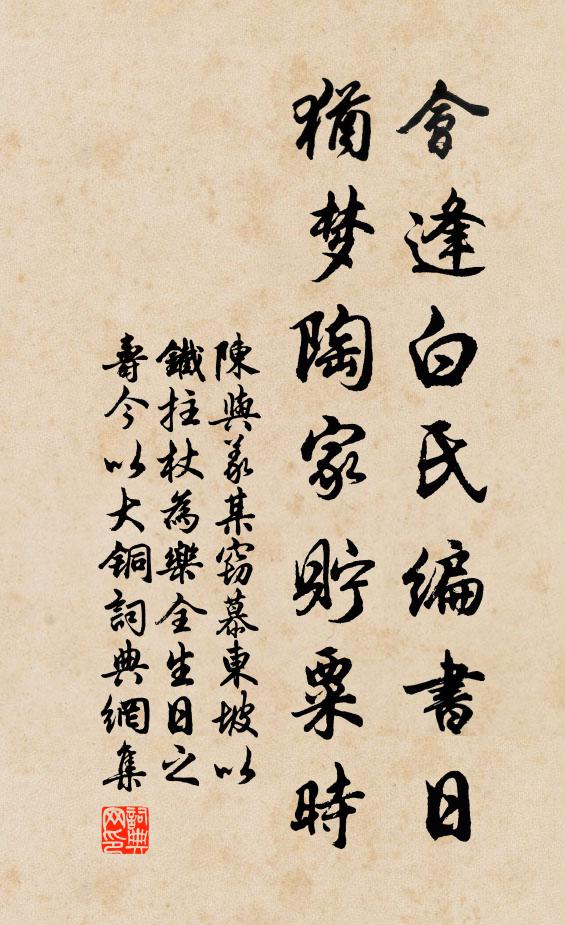 會逢白氏編書日
猶梦陶家貯粟時
陳與義某竊慕東坡以
鐵拄杖為樂全生日之
壽今以大銅詞典網集
詞典網印